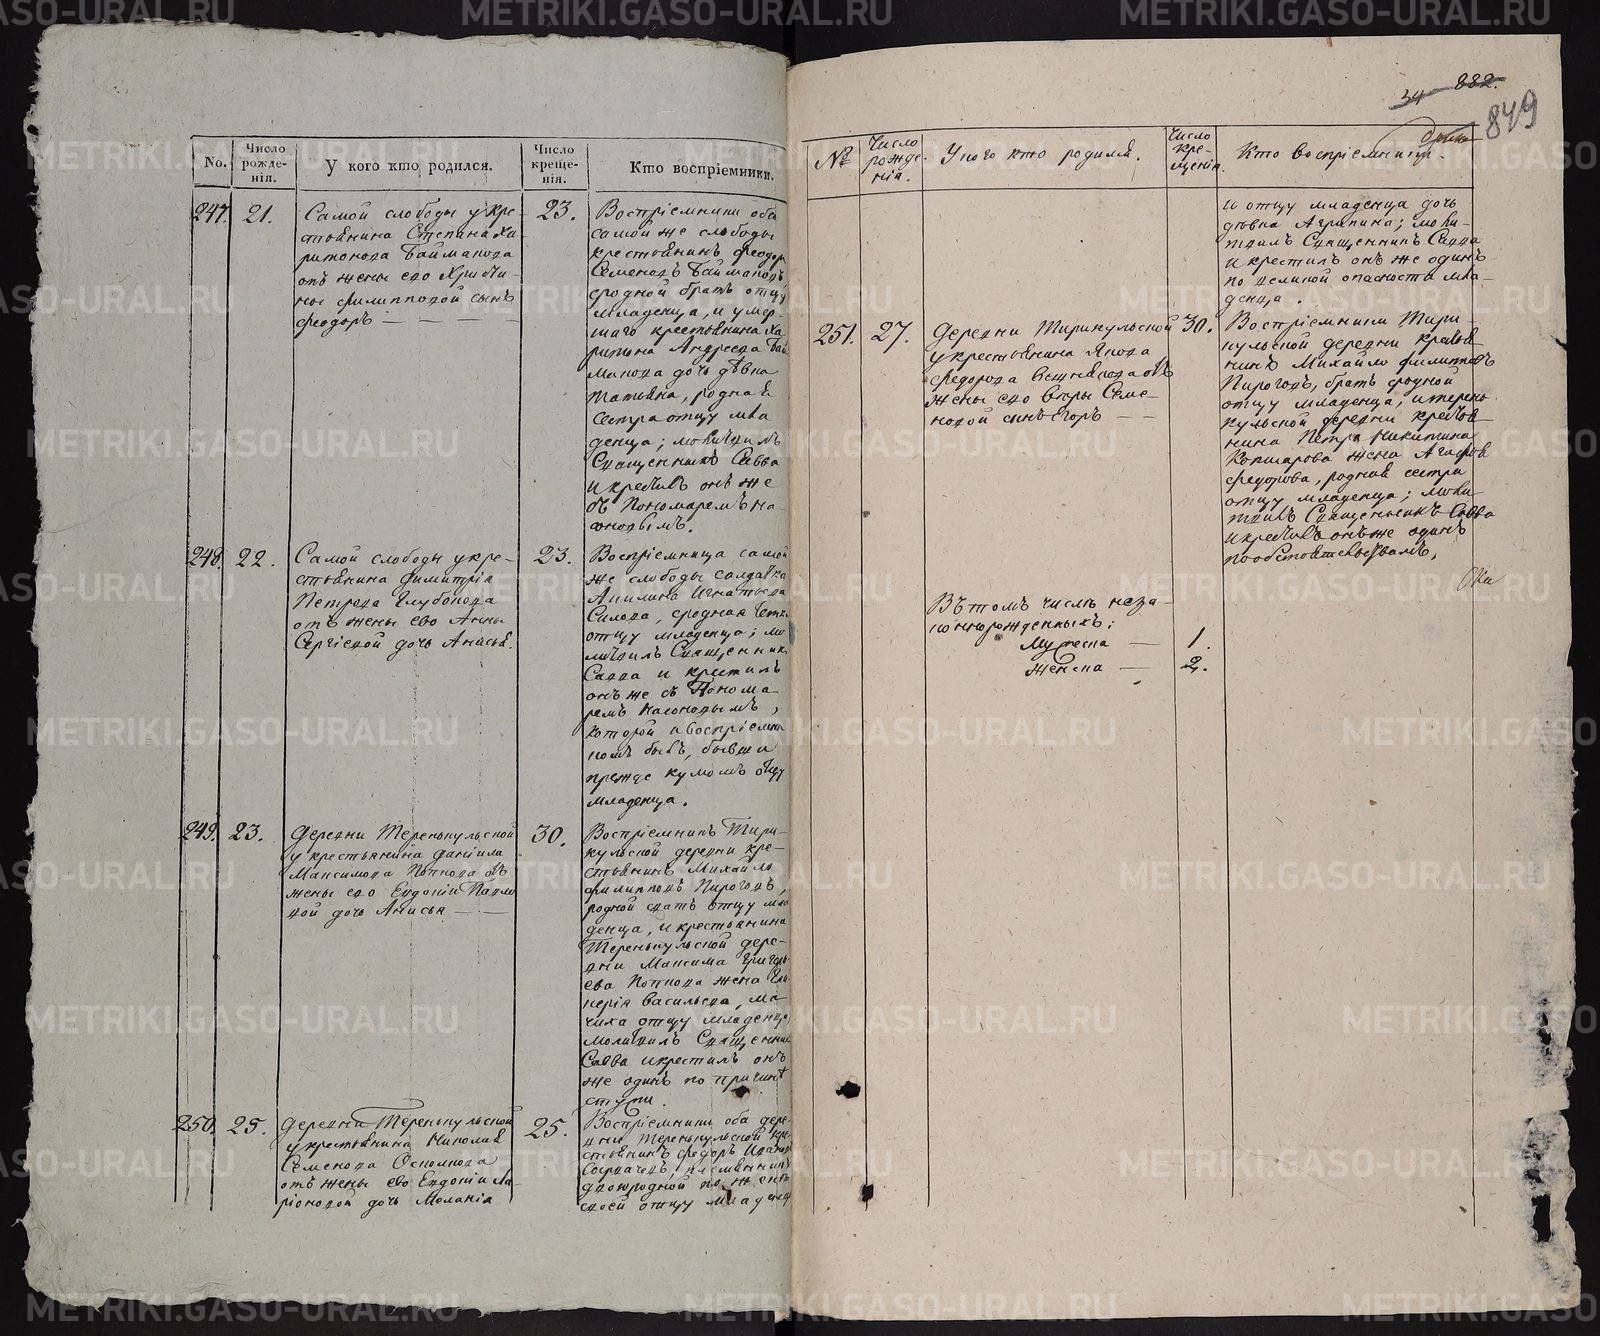 No.
Число рожде-нія.
У кого кто родился.
Число креще-нія.
Кто воспріемники.
247.
21.
Самой слободы у кре-
стьянина Степана Ха-
ритонова Байманова
отъ жены его Христи-
ны Филипповой сынъ
Феодоръ — — —
23.
Воспріемники оба
самой же слободы
крестьянинъ Феодоръ
Семеновъ Баймановъ
сродной братъ отцу
младенца, и умер-
шаго крестьянина Ха
ритона Андреева Бай
манова дочь дѣвка
Татьяна, родная
сестра отцу мла
денца; молитвилъ
Священникъ Савва
и крестилъ онъ же
съ Пономаремъ На-
248.
22.
Самой слободы у кре-
стьянина Димитрія
Петрова Глубокова
отъ жены его Анны
Сергѣевой дочь Анисья.
23.
Воспріемница самой
же слободы солдатка
Акилина Игнатьева
отцу младенца; мо
литвилъ Священникъ
Савва и крестилъ
онъ же съ Понома-
ремъ
которой и воспріемни
комъ былъ, бывши
прежде кумомъ отцу
младенца.
249.
23.
Деревни Теренькульской
у крестьянина Даніила
Максимова Попкова отъ
жены его Евдокіи Павло
вой дочь Анисья — —
30.
Воспріемникъ Тири-
кульской деревни кре-
стьянинъ Михайло
Филипповъ Пироговъ,
родной сватъ отцу мла
денца, и крестьянина
Теренькульской дере-
вни Максима Григорь
ева Попкова жена Гли
керія Васильева, ма-
чиха отцу младенца
молитвилъ Священникъ
Савва и крестилъ онъ
же одинъ по причинѣ
стужи.
250.
25.
Деревни Теренькульской
у крестьянина Николая
Семенова
отъ жены его Евдокіи Ла-
ріоновой дочь Меланія
25.
Воспріемники оба дере
вни Теренькульской кре
стьянинъ Федоръ Ивановъ
племянникъ
двоюродной по женѣ
своей отцу младенца
34 882.
849
№
Число рожде-нія.
У кого кто родился.
Число кре-щенія.
Кто воспріемники.
и отцу младенца дочь
дѣвка Агрипина; моли-
твилъ Священникъ Савва
и крестилъ онъ же одинъ
по великой опасности мла-
денца.
251.
27.
Деревни Тирикульской
у крестьянина Якова
Федорова
жены его Вѣры Семе-
новой сынъ Егоръ — —
30.
Воспріемники Тири-
кульской деревни крестья
нинъ Михайло Филипповъ
Пироговъ, братъ сродной
отцу младенца, и терень
кульской деревни крестья
нина Петра Никитина
Копшарова жена Агафья
Федорова, родная сестра
отцу младенца; моли
твилъ Священникъ Савва
и крестилъ онъ же одинъ
по обстоятельствамъ,
Въ томъ числѣ неза-
коннорожденныхъ:
Мужеска — 1.
Женска — 2.
METRIKI.GASO-URAL.RU